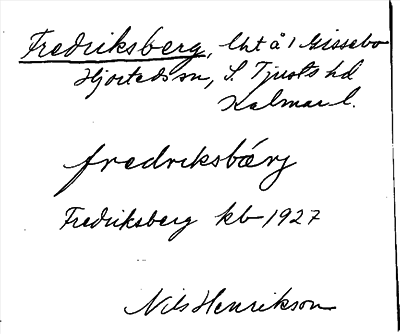 Fredriksberg, lht å 1 Gissebo
Hjorteds sn, S. Tjusts hd
Kalmar l.
fredriksbärj
Fredriksberg kb 1927
Nils Henrikson